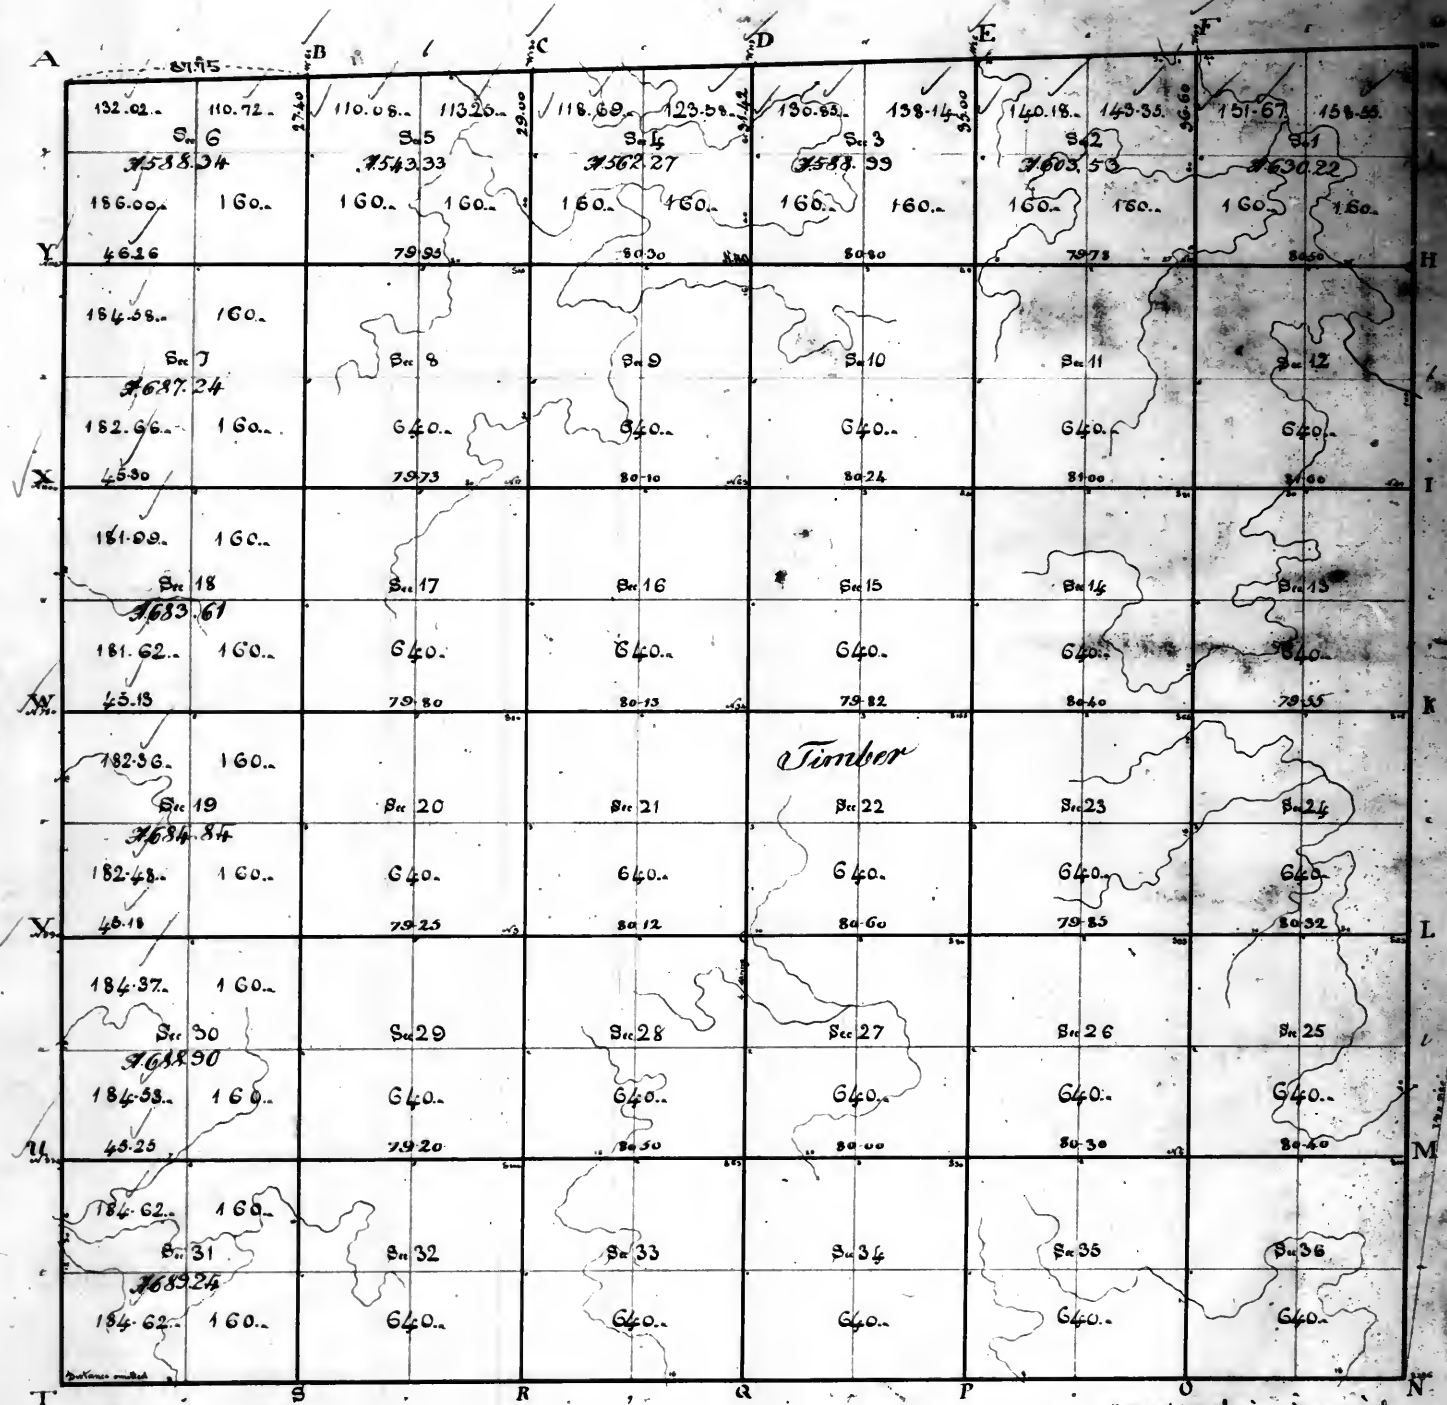 A B C D E F
87.75
132.02.. 110.72.. 27.40 110.08.. 113.25.. 29.00 118.69.. 123.58.. 31.42 130.85.. 138.14 35.00 140.18.. 143.35.. 36.60 151.67 158.55.
Sec 6 Sec 5 Sec 4 Sec 3 Sec 2 Sec 1
A.588.34 A.543.33 A.562.27 A.588.99 A.603.53 A.630.22
186.00.. 160.. 160.. 160.. 160.. 160.. 160.. 160.. 160.. 160.. 160.. 160..
Y 46.26 79.95 80.30 80.80 79.78 80.50 H
184.58.. 160..
Sec 7 Sec 8 Sec 9 Sec 10 Sec 11 Sec 12
A.687.24
182.66.. 160.. 640.. 640.. 640.. 640.. 640..
X 45.30 79.73 80.10 80.24 81.00 81.00 I
181.99.. 160..
Sec 18 Sec 17 Sec 16 Sec 15 Sec 14 Sec 13
A.683.61
181.62.. 160.. 640.. 640.. 640.. 640.. 640..
W 45.13 79.80 80.13 79.82 80.40 79.55 K
182.36.. 160.. Timber
Sec 19 Sec 20 Sec 21 Sec 22 Sec 23 Sec 24
A.684.84
182.48.. 160.. 640.. 640.. 640.. 640.. 640..
V 45.18 79.25 80.12 80.60 79.85 80.32 L
184.37.. 160..
Sec 30 Sec 29 Sec 28 Sec 27 Sec 26 Sec 25
A.688.90
184.53.. 160.. 640.. 640.. 640.. 640.. 640..
U 45.25 79.20 80.50 80.00 80.30 80.40 M
184.62.. 160..
Sec 31 Sec 32 Sec 33 Sec 34 Sec 35 Sec 36
A.689.24
184.62.. 160.. 640.. 640.. 640.. 640.. 640..
Distance omitted
T S R Q P O N